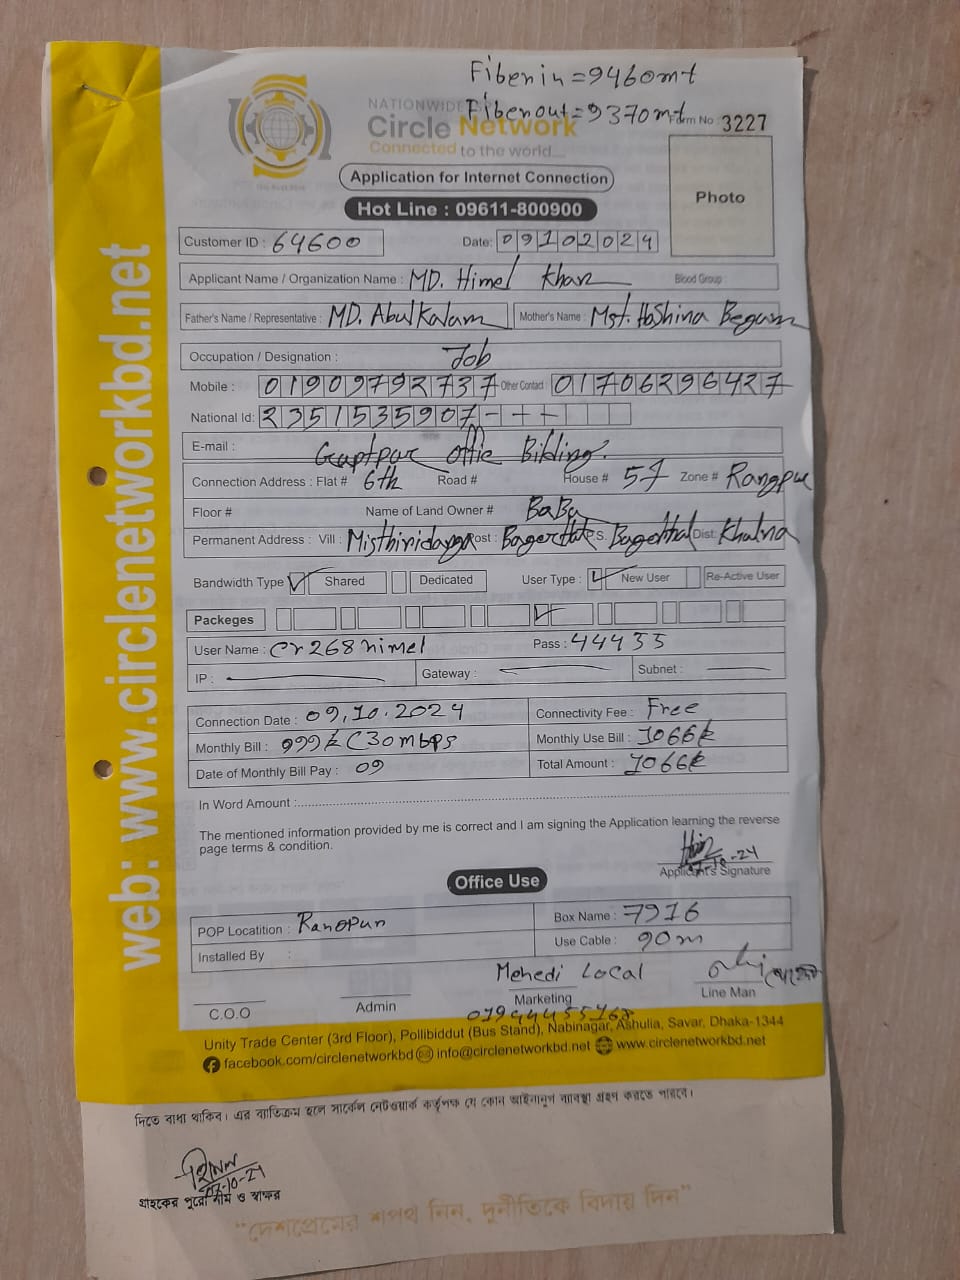 Fiber in = 9460mt
Fiber out = 9370mt
NATIONWIDE
Form No : 3227
Circle Network
Connected to the world....
Application for Internet Connection
Hot Line : 09611-800900
Photo
Customer ID : 64600 Date: 09102024
Applicant Name / Organization Name : MD. Himel Khan Blood Group :
Father's Name / Representative : MD. Abul Kalam Mother's Name : Mst. Begum
Occupation / Designation : Job
Mobile : 01909792737 Other Contact : 01706296427
National Id: 2351535907
E-mail :
Connection Address : Flat # 6th Road # House # 57 Zone # Rangpur
Floor # Name of Land Owner # BaBa
Permanent Address : Vill : Post : P.S. Dist: Khulna
Bandwidth Type ✓ Shared Dedicated User Type : ✓ New User Re-Active User
Packeges ✓
User Name : cr268himel Pass : 44433
IP : Gateway : Subnet :
Connection Date : 09.10.2024 Connectivity Fee : Free
Monthly Bill : 999 (30mbps Monthly Use Bill : 1066
Date of Monthly Bill Pay : 09 Total Amount : 1066
In Word Amount :
The mentioned information provided by me is correct and I am signing the Application learning the reverse
page terms & condition.
Applicant's Signature
Office Use
POP Locatition : Box Name : 7916
Installed By : Use Cable : 90m
Mehedi Local
C.O.O Admin Marketing Line Man
Unity Trade Center (3rd Floor), Pollibiddut (Bus Stand), Nabinagar, Ashulia, Savar, Dhaka-1344
facebook.com/circlenetworkbd info@circlenetworkbd.net www.circlenetworkbd.net
web: www.circlenetworkbd.net
দিতে বাধ্য থাকিব। এর ব্যতিক্রম হলে সার্কেল নেটওয়ার্ক কর্তৃপক্ষ যে কোন আইনানুগ ব্যবস্থা গ্রহণ করতে পারবে।
গ্রাহকের পুরো নাম ও স্বাক্ষর
"দেশপ্রেমের শপথ নিন, দুর্নীতিকে বিদায় দিন"